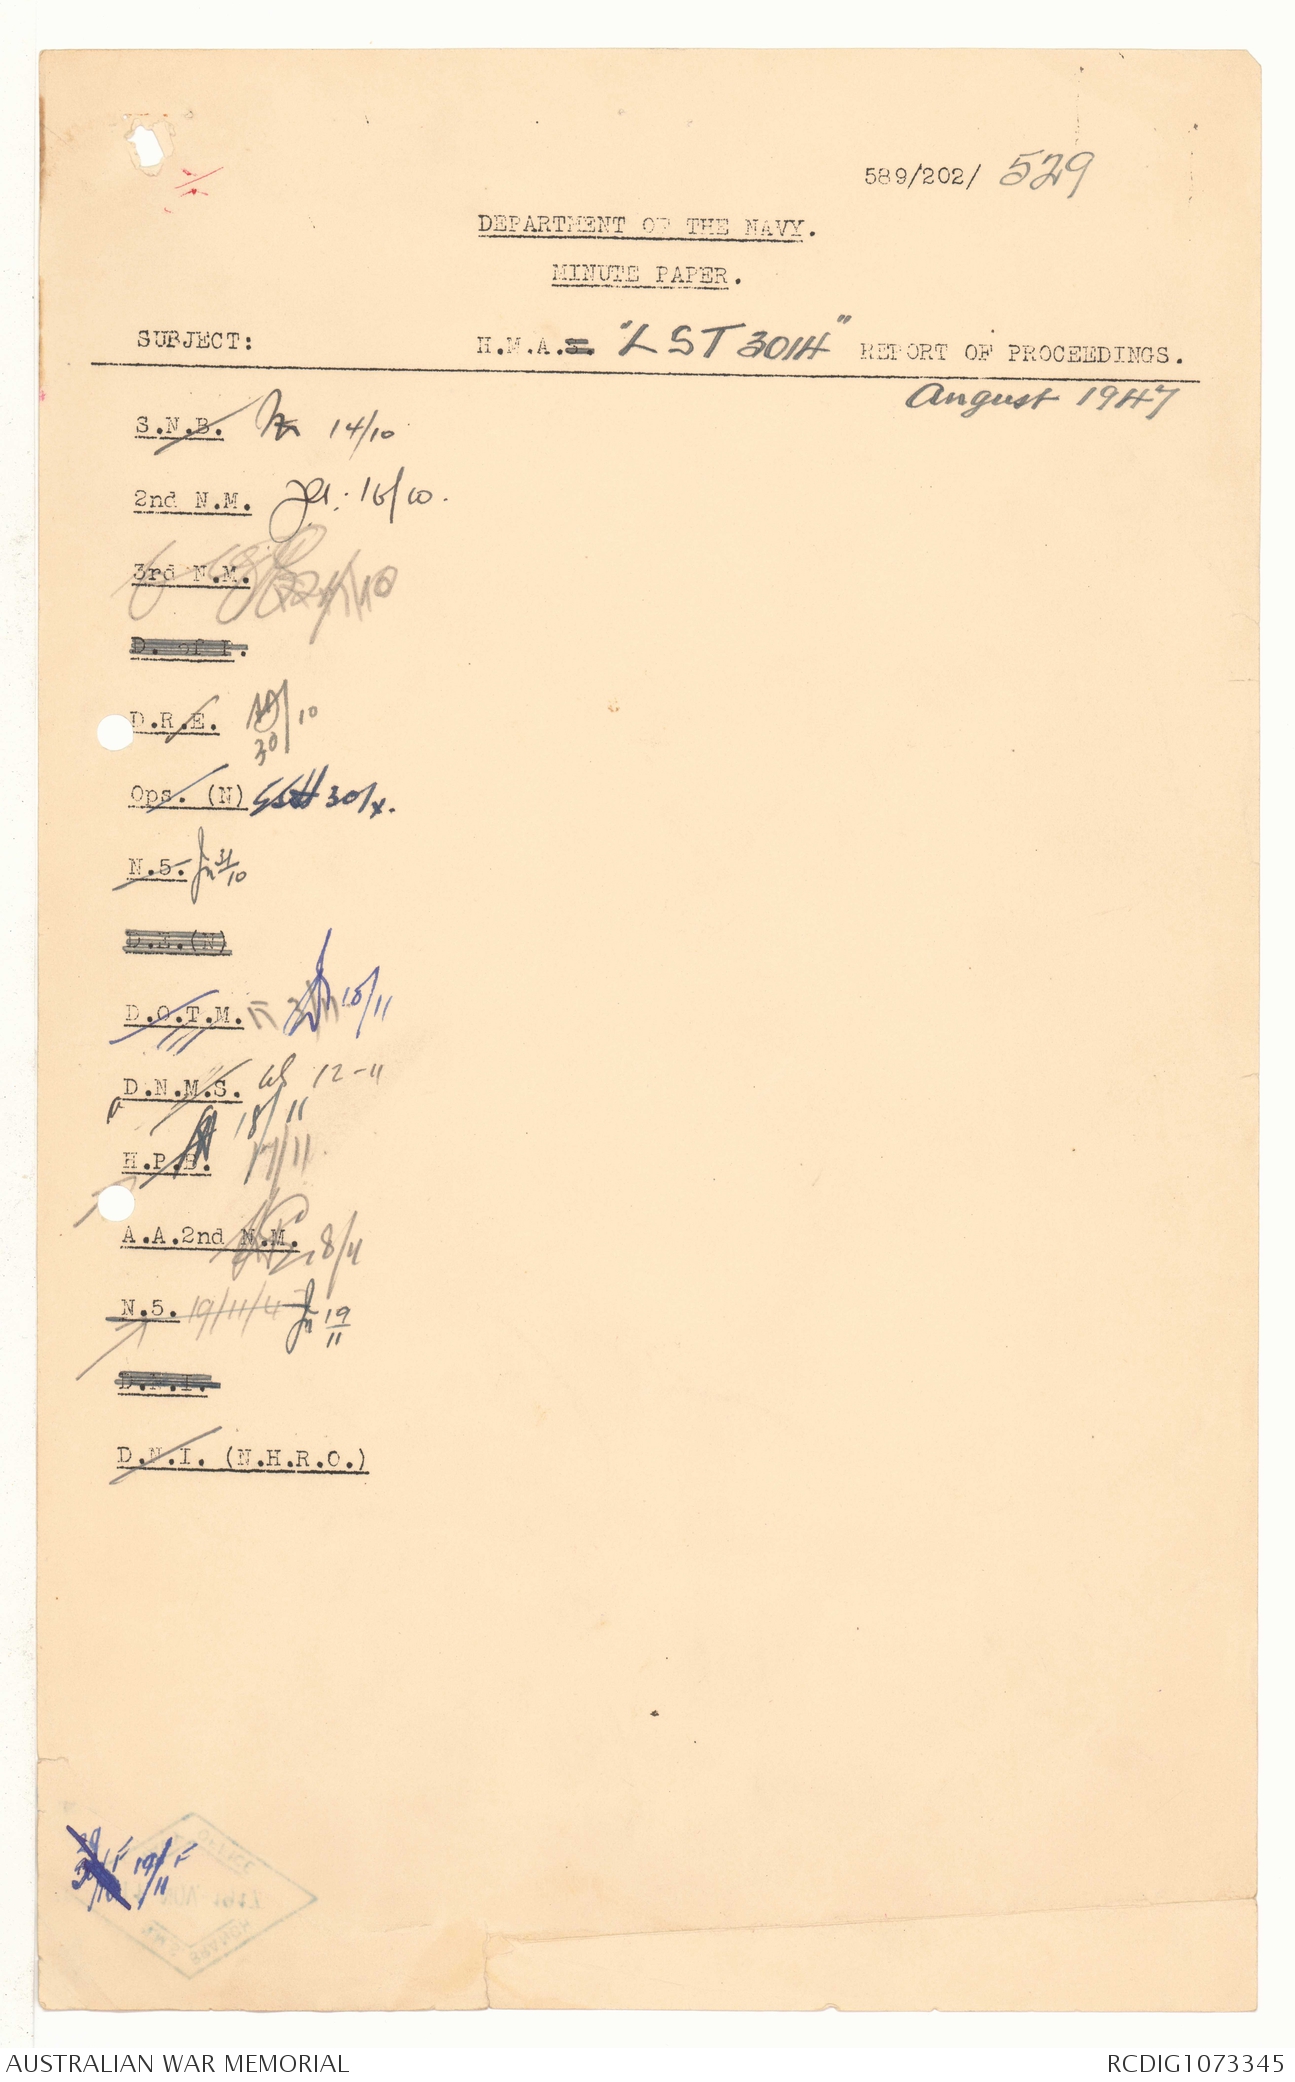 589/202/ 529
DEPARTMENT OF THE NAVY.
MINUTE PAPER.
SUBJECT: H.M.A.S. "LST 3014" REPORT OF PROCEEDINGS.
August 1947
S.N.B. 14/10
2nd N.M. 16/10.
3rd N.M.
D. of I.
D.R.E. 30/10
Ops. (N) 30/x.
N.5. 31/10
D.E.(N)
D.O.T.M. 18/11
D.N.M.S. 12-11
18/11
H.P.B. 17/11
A.A.2nd N.M.
N.5. 19/11/4 19/11
D.N.I.
D.N.I. (N.H.R.O.)
19/11
AUSTRALIAN WAR MEMORIAL RCDIG1073345